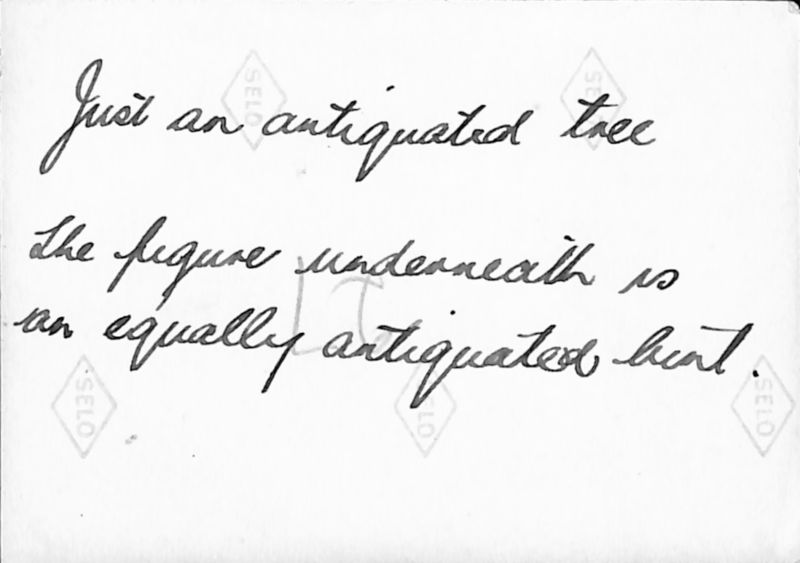 SELO SELO
Just an antiquated tree
the figure underneath is
an equally antiquated bint.
SELO SELO SELO